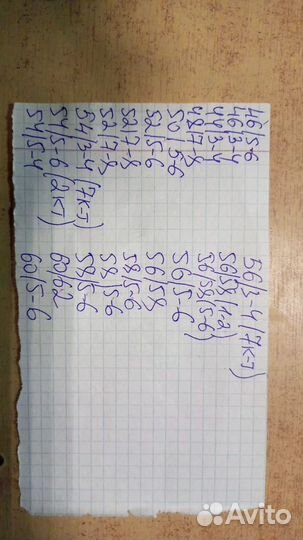 46|5-6
46|3-4
44|3-4
48|7-8
50| 5-6
52|5-6
52|7-8
52|7-8
54/3-4 (7к-т)
54/5-6 (2к-т)
54/5-4
56/3-4 (7к-т)
56/58 (1-2)
56/58 (5-6)
56/5-6
56/58
58/5-6
58/5-6
58/5-6
60/62
60/5-6
Avito